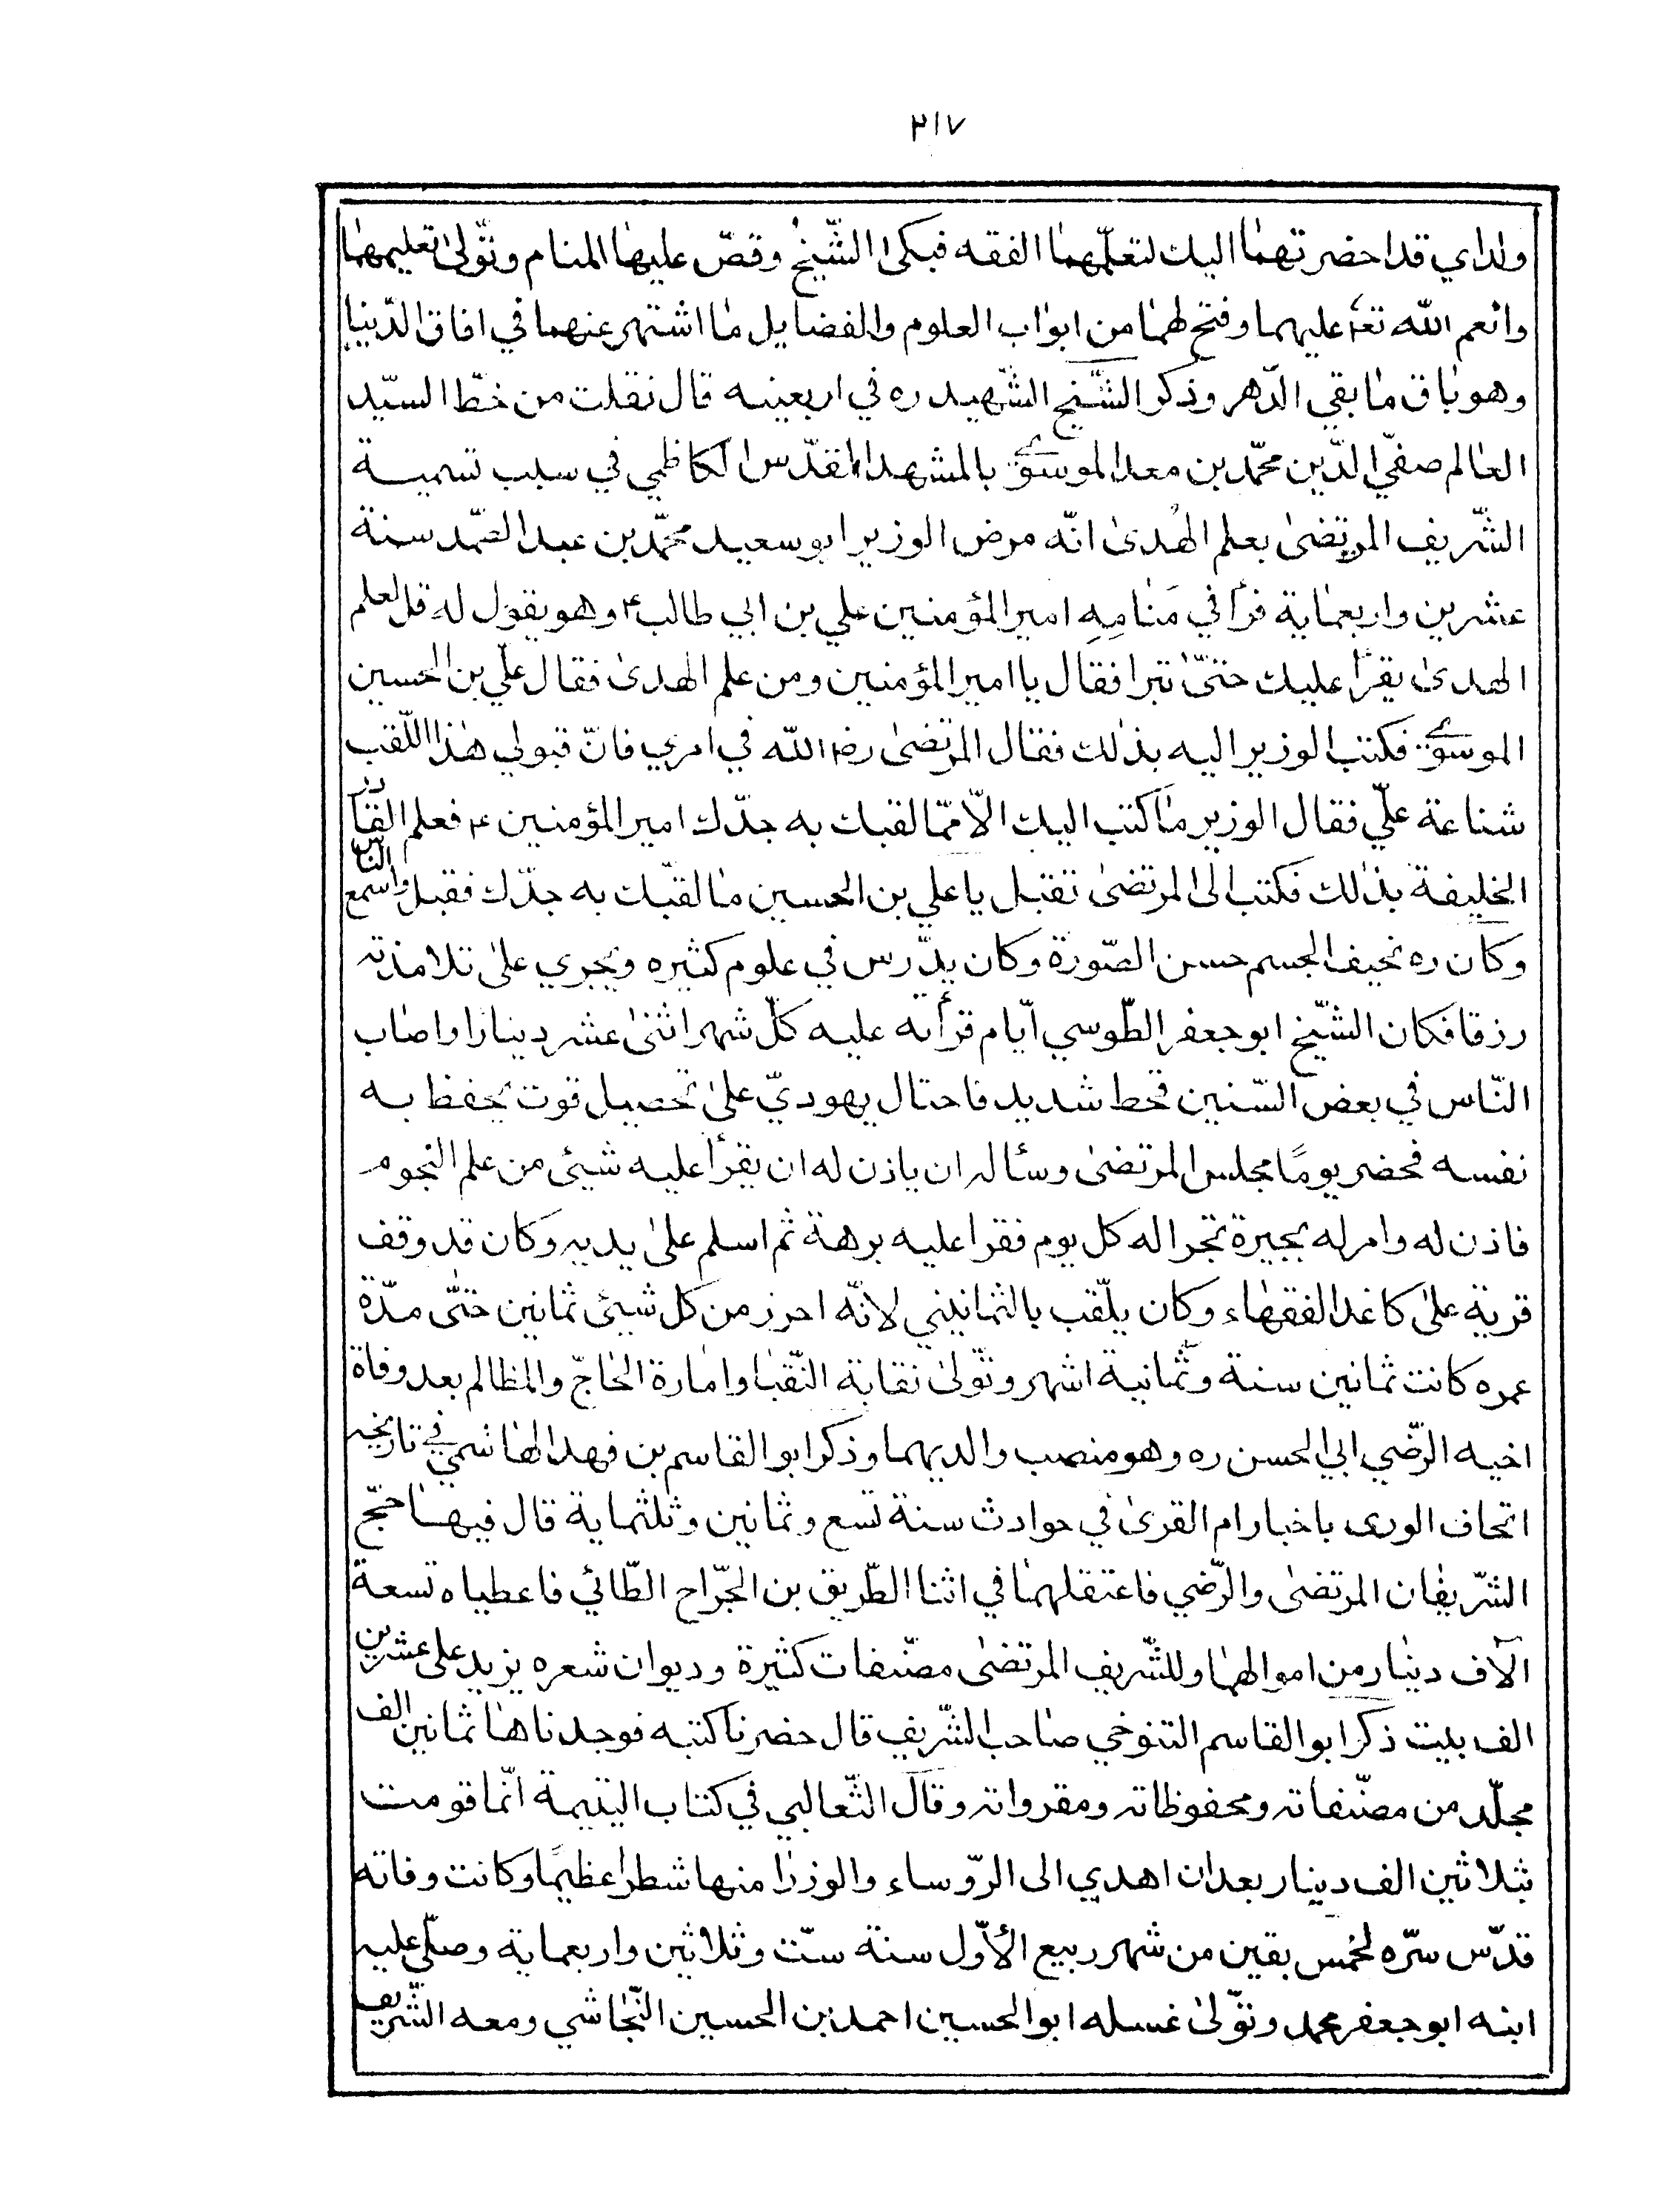 ٢١٧
ولداي قد احضرتهما اليك لتعلّمهما الفقه فبكى الشّيخ وقصّ عليها المنام وتولّى تعليمهما
وانعم اللّه تعا عليهما وفتح لهما من ابواب العلوم والفضايل ما اشتهر عنهما في افاق الدّنيا
وهو باق ما بقي الدّهر وذكر الشّيخ الشّهيد ره في اربعينه قال نقلت من خطّ السيّد
العالم صفيّ الدّين محمّد بن معد الموسوي بالمشهد المقدّس الكاظمي في سبب تسمية
الشّريف المرتضى بعلم الهُدى انّه مرض الوزير ابو سعيد محمّد بن عبد الصّمد سنة
عشرين واربعماية فرأ في مَنامِهِ امير المؤمنين علي بن ابي طالب ع وهو يقول له قل لعلم
الهدى يقرأ عليك حتّى تبرا فقال يا امير المؤمنين ومن علم الهدى فقال علّي بن الحسين
الموسوي فكتب الوزير اليه بذلك فقال المرتضى رض اللّه في امري فانّ قبولي هذا اللّقب
شناعة علّي فقال الوزير ما كتب اليك الّا ممّا لقبك به جدّك امير المؤمنين ع فعلم القادر
الخليفة بذلك فكتب الى المرتضى تقتبل يا علي بن الحسين ما لقبّك به جدّك فقبل واسمع الناس
وكان ره نحيف الجسم حسن الصّورة وكان يدّرس في علوم كثيره ويجري على تلامذته
رزقا فكان الشّيخ ابو جعفر الطّوسي ايّام قرأته عليه كلّ شهر اثنى عشر دينارا واصاب
النّاس في بعض السّنين قحط شديد فاحتال يهوديّ على تحصيل قوت يحفظ به
نفسه فحضر يومًا مجلس المرتضى وسئاله ان ياذن له ان يقرأ عليه شيئ من علم النجوم
فاذن له وامر له بجيرة تجرا له كل يوم فقرا عليه برهة ثم اسلم على يديه وكان قد وقف
قرية على كاغد الفقهاء وكان يلّقب بالثمانيني لانّه احرز من كل شيئ ثمانين حتّى مدّة
عمره كانت ثمانين سنة وثمانية اشهر وتولّى نقابة النّقبا وامارة الحاجّ والمظالم بعد وفاة
اخيه الرّضي ابي الحسن ره وهو منصب والديهما وذكر ابو القاسم بن فهد الهاشمي في تاريخه
اتحاف الورى باخبار ام القرى في حوادث سنة تسع وثمانين وثلثماية قال فيها حجّ
الشّريفان المرتضى والرّضي فاعتقلهما في اثنا الطّريق بن الجرّاح الطّائي فاعطياه تسعة
الآف دينار من اموالهما وللشّريف المرتضى مصنّفات كثيرة وديوان شعره يزيد على عشرين
الف بيت ذكر ابو القاسم التنوخي صاحب الشّريف قال حضرنا كتبه فوجدناها ثمانين الف
مجلّد من مصنّفاته ومحفوظاته ومقرواته وقال الثّعالبي في كتاب اليتيمة انّما قومت
بثلاثين الف دينار بعد ان اهدي الى الرّوساء والوزرا منها شطرا عظيمًا وكانت وفاته
قدّس سرّه لخمس بقين من شهر ربيع الأوّل سنة ستّ وثلاثين واربعماية وصلّى عليه
ابنه ابو جعفر محمد وتولّى غسله ابو الحسين احمد بن الحسين النّجاشي ومعه الشّريف